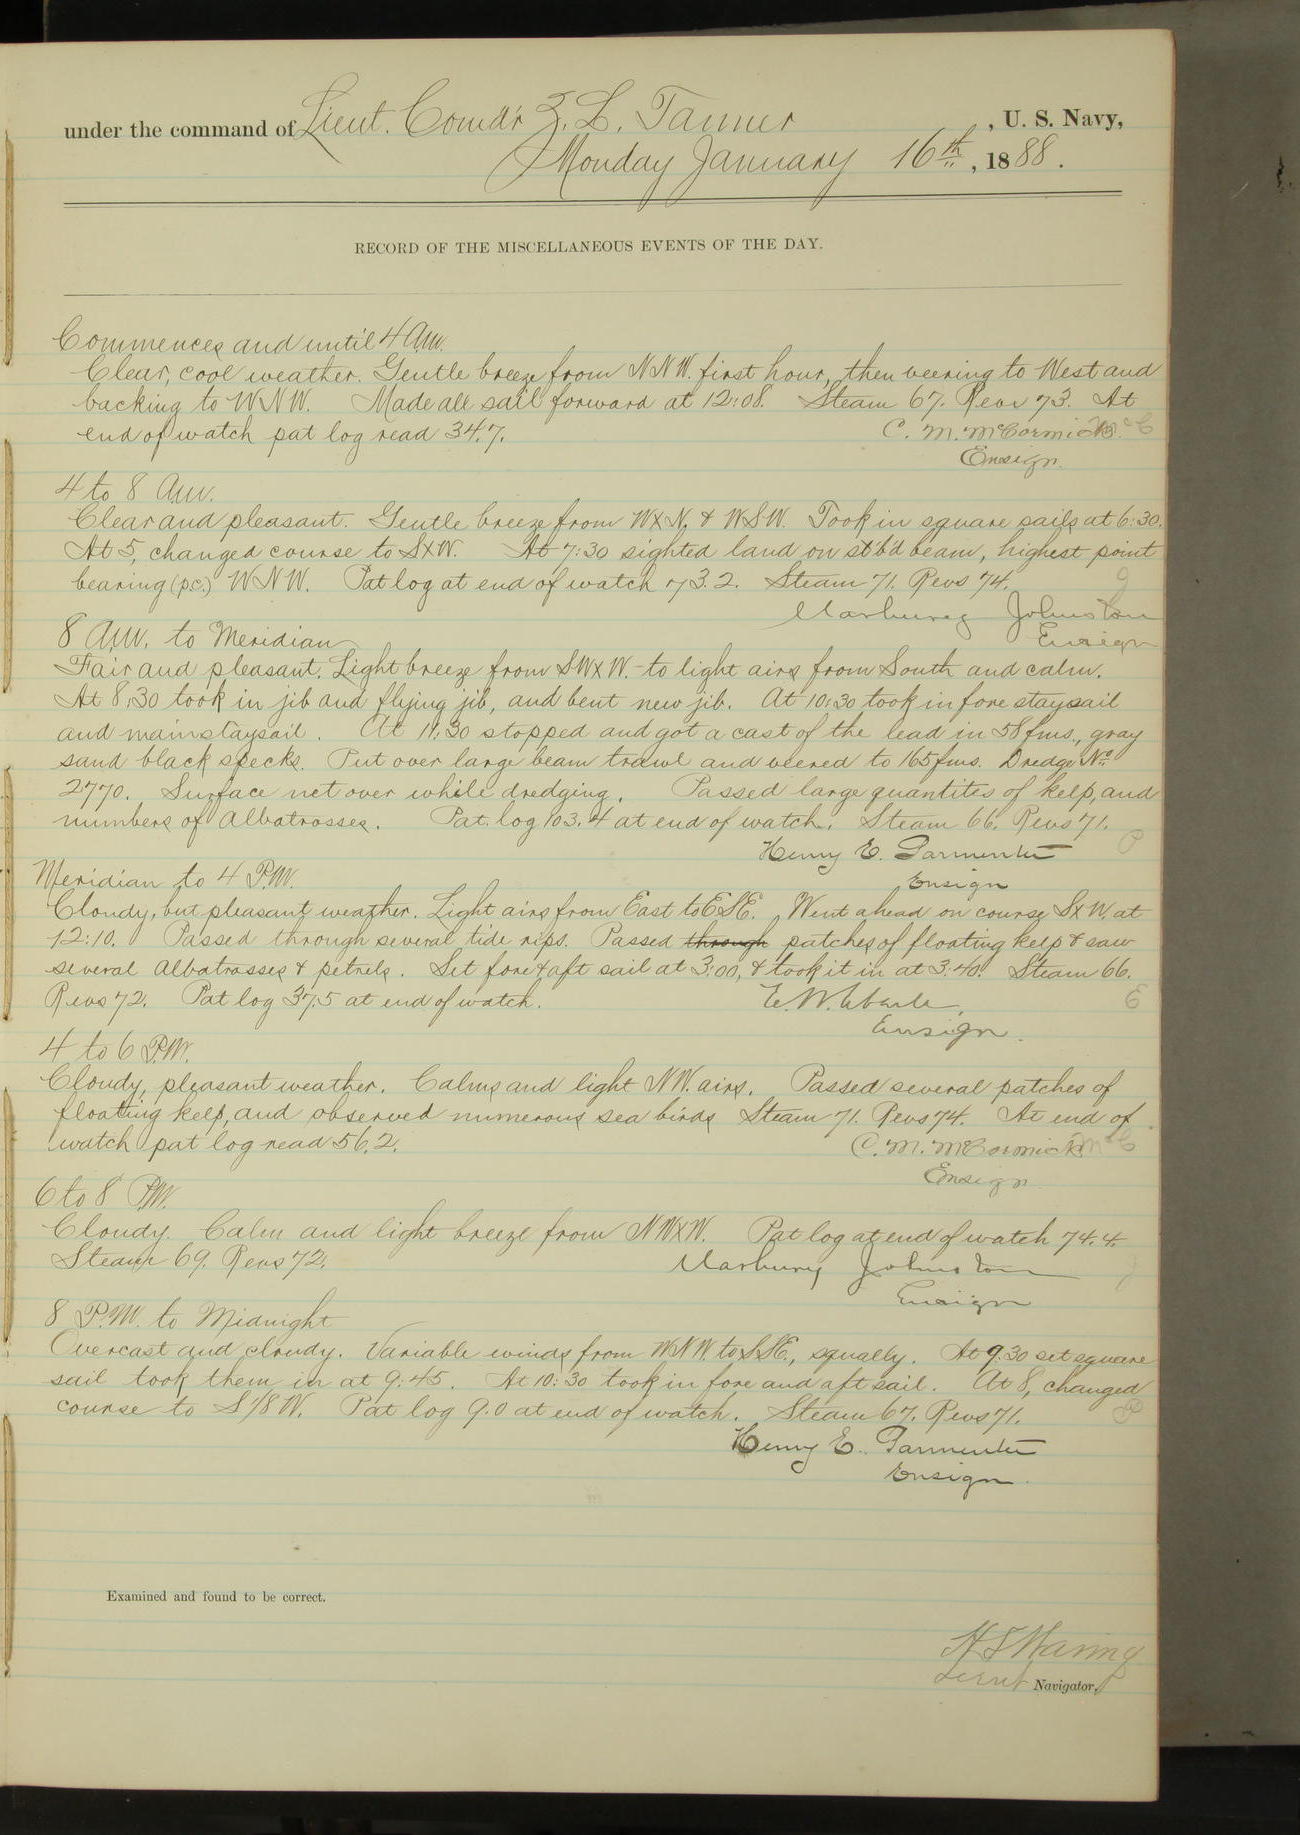 under the command of Lieut. Comd'r Z. L. Tanner, U. S. Navy,
Monday January 16th, 1888.
RECORD OF THE MISCELLANEOUS EVENTS OF THE DAY.
Commences and until 4 A.M.
Clear, cool weather. Gentle breeze from NNW. first hour, then veering to West and
backing to WNW. Made all sail forward at 12:08. Steam 67. Revs 73. At
end of watch pat log read 34.7. C. M. McCormick McC
Ensign.
4 to 8 A.M.
Clear and pleasant. Gentle breeze from WxN. & WSW. Took in square sails at 6:30.
At 5, changed course to SxW. At 7:30 sighted land on stb'd beam, highest point
bearing (p.c.) WNW. Pat log at end of watch 73.2. Steam 71. Revs 74. J
Marbury Johnston
8 A.M. to Meridian Ensign
Fair and pleasant. Light breeze from SWxW. to light airs from South and calm.
At 8:30 took in jib and flying jib, and bent new jib. At 10:30 took in fore staysail
and mainstaysail. At 11:30 stopped and got a cast of the lead in 58 fms., gray
sand black specks. Put over large beam trawl and veered to 165 fms. Dredge No.
2770. Surface net over while dredging. Passed large quantites of kelp, and
numbers of Albatrosses. Pat. log 103.4 at end of watch. Steam 66. Revs 71. P
Henry E. Parmenter
Meridian to 4 P.M. Ensign
Cloudy, but pleasant weather. Light airs from East to ESE. Went ahead on course SxW. at
12:10. Passed through several tide rips. Passed through patches of floating kelp & saw
several albatrosses & petrels. Set fore & aft sail at 3:00, & took it in at 3:40. Steam 66.
Revs 72. Pat log 37.5 at end of watch. E. W. Eberle, E
Ensign.
4 to 6 P.M.
Cloudy, pleasant weather. Calms and light NW. airs. Passed several patches of
floating kelp, and observed numerous sea birds Steam 71. Revs 74. At end of
watch pat log read 56.2. C. M. McCormick McC
Ensign
6 to 8 P.M.
Cloudy. Calm and light breeze from NWxW. Pat log at end of watch 74.4.
Steam 69. Revs 72. Marbury Johnston J
Ensign
8 P.M. to Midnight
Overcast and cloudy. Variable winds from WNW. to SSE., squally. At 9:30 set square
sail took them in at 9:45. At 10:30 took in fore and aft sail. At 8, changed
course to S 1/8 W. Pat log 9.0 at end of watch. Steam 67. Revs 71. P
Henry E. Parmenter
Ensign.
Examined and found to be correct.
H S Waring
Lieut Navigator.